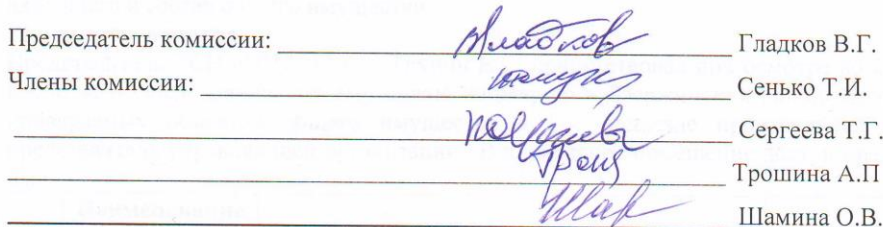 Председатель комиссии: Гладков В.Г.
Члены комиссии: Сенько Т.И.
Сергеева Т.Г.
Трошина А.П
Шамина О.В.